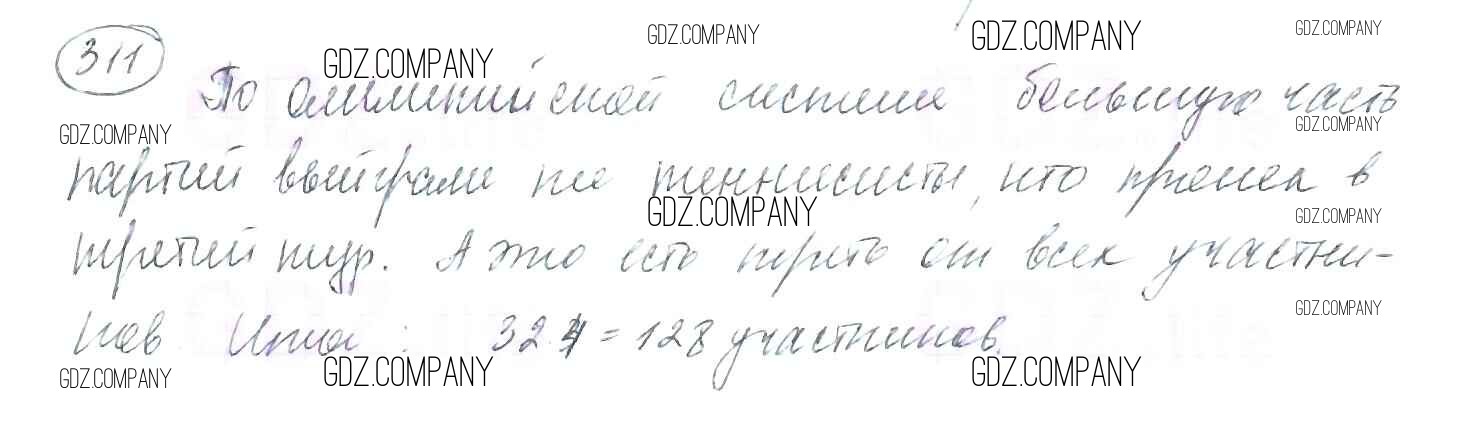 311
По олимпийской системе большую часть
партий выиграли те теннисисты, что прошел в
третий тур. А это есть треть от всех участни-
ков Итог : 32·4 = 128 участников.
GDZ.COMPANY
GDZ.COMPANY
GDZ.COMPANY
GDZ.COMPANY
GDZ.COMPANY
GDZ.COMPANY
GDZ.COMPANY
GDZ.COMPANY
GDZ.COMPANY
GDZ.COMPANY
GDZ.COMPANY
GDZ.COMPANY